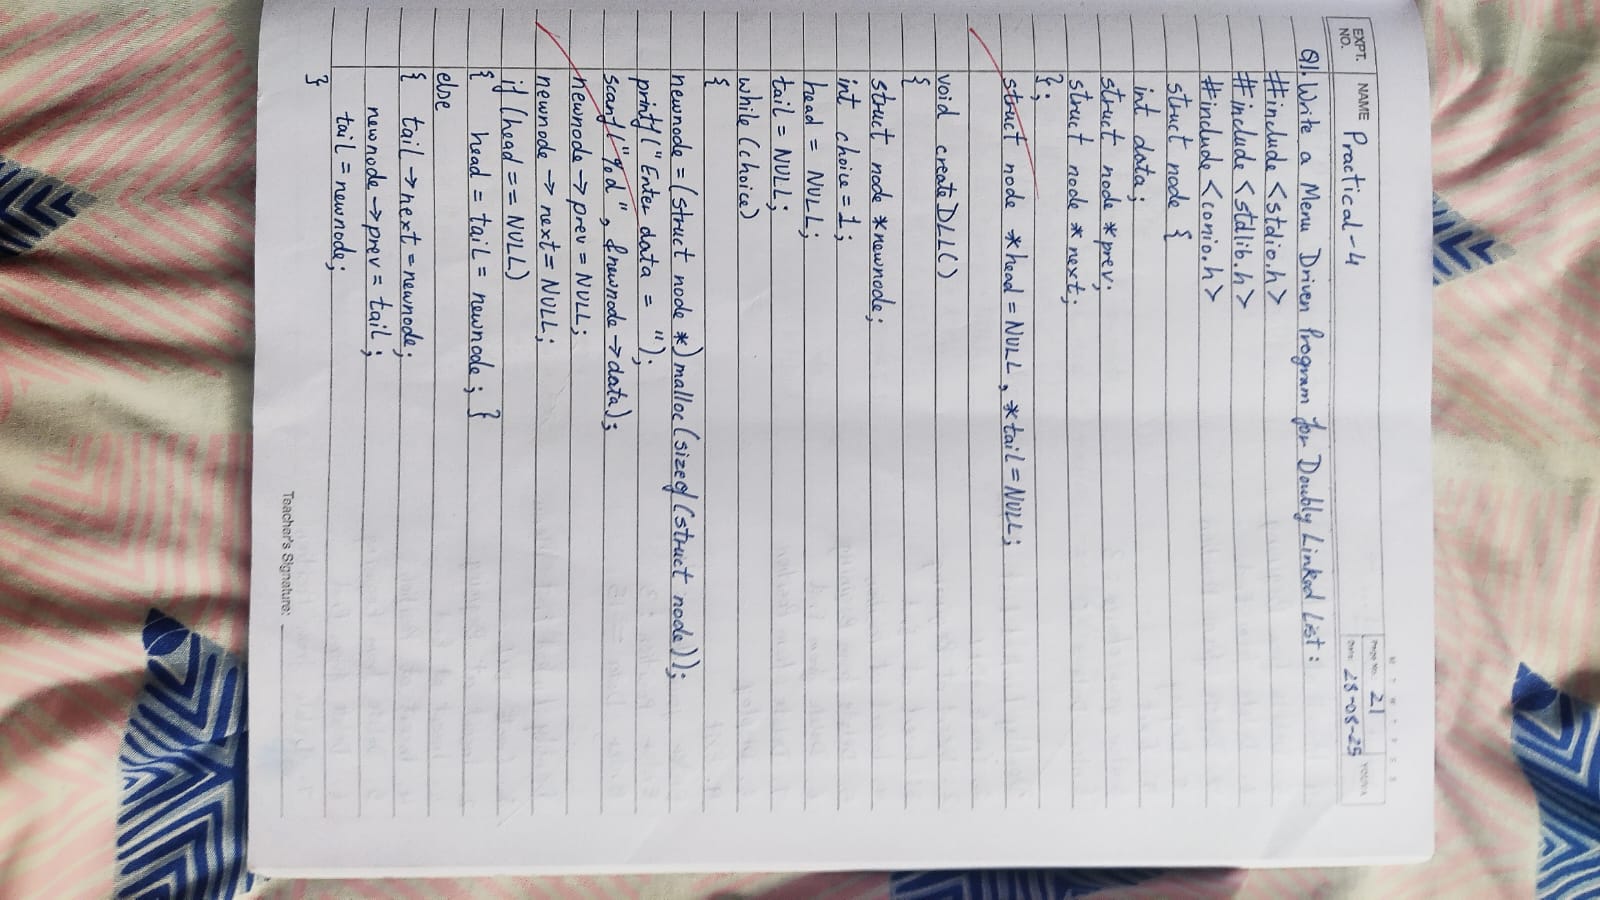 M T W T F S S
EXPT. NO. NAME Practical-4
Page No.: 21
Date: 28-08-25
YOUVA
Q1. Write a Menu Driven Program for Doubly Linked List:
#include <stdio.h>
#include <stdlib.h>
#include <conio.h>
struct node {
int data;
struct node *prev;
struct node *next;
};
struct node *head = NULL, *tail = NULL;
void createDLL()
{
struct node *newnode;
int choice = 1;
head = NULL;
tail = NULL;
while (choice)
{
newnode = (struct node *) malloc (sizeof (struct node));
printf ("Enter data = ");
scanf ("%d", &newnode → data);
newnode → prev = NULL;
newnode → next = NULL;
if (head == NULL)
{ head = tail = newnode; }
else
{ tail → next = newnode;
newnode → prev = tail;
tail = newnode;
}
Teacher's Signature: